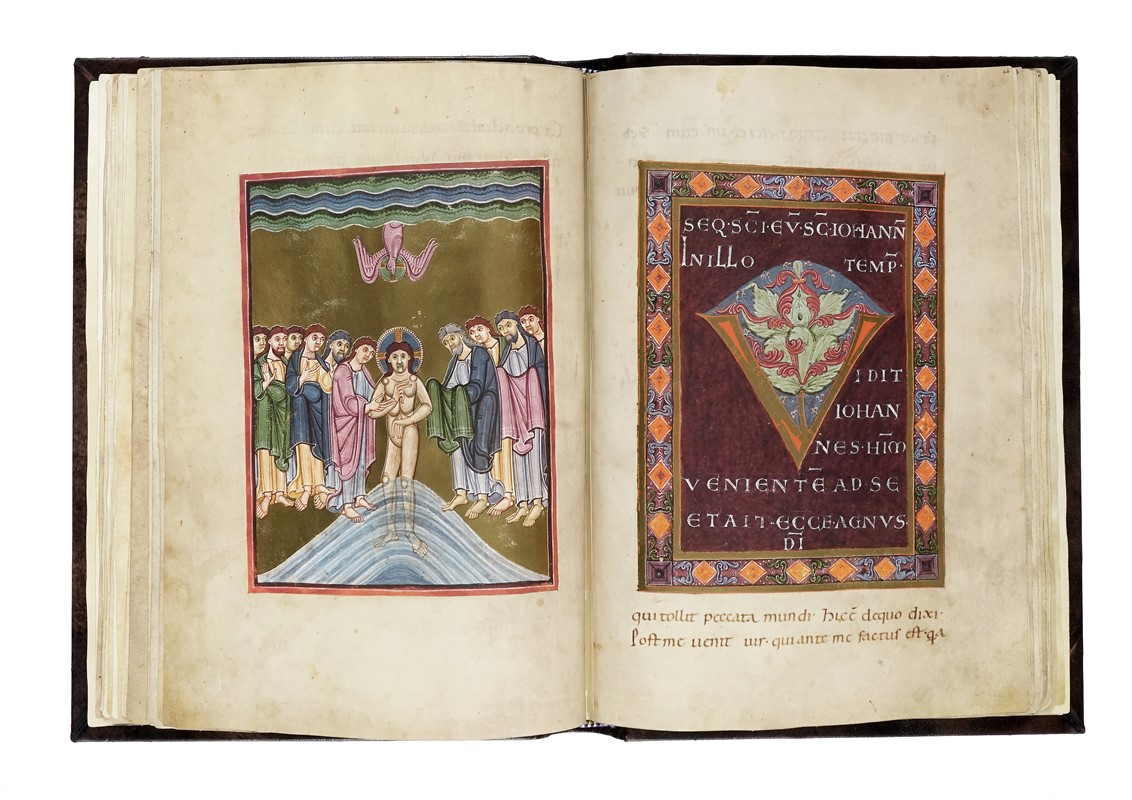 SEQ·SC̄I·EV̄·SC̄·IOHANN̄
INILLO TEMP̄·
IDIT
IOHAN
NES·HIM̄
VENIENTĒ AD SE
ETAIT·ECCE AGNVS·
D̄I
qui tollit peccata mundi· hic ē dequo dixi·
Post me uenit uir· qui ante me factus est· q̄a